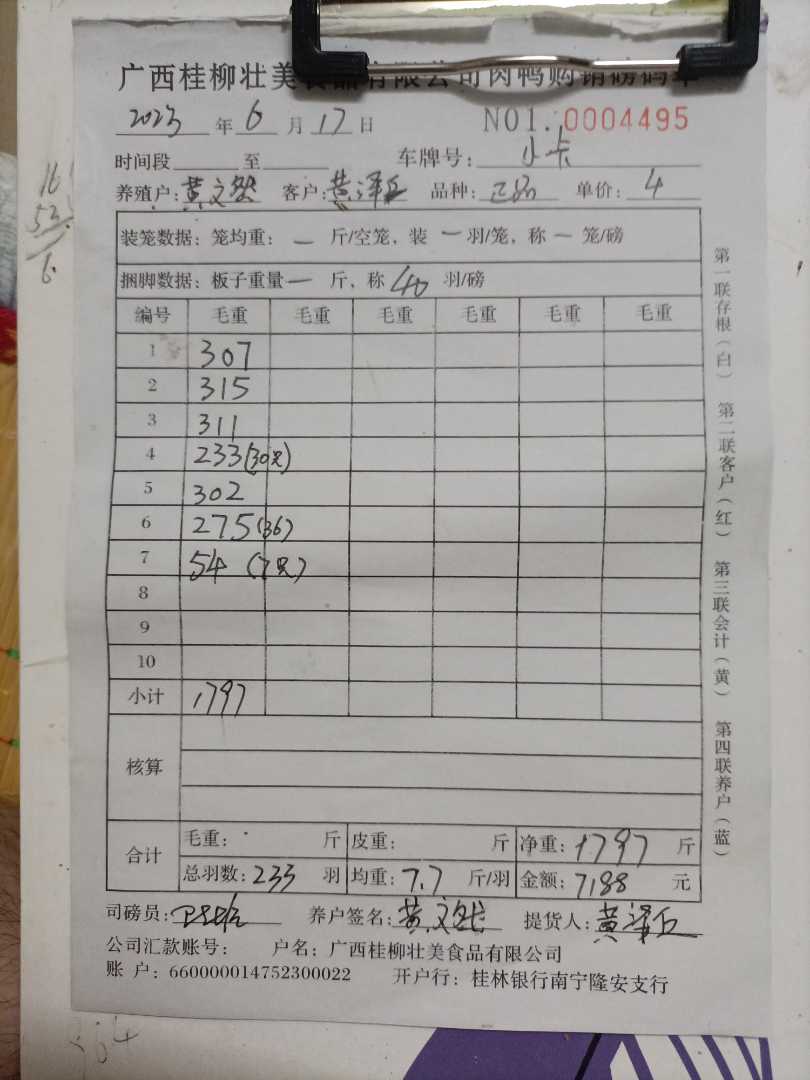 广西桂柳壮美食品有限公司肉鸭购销磅码单
2023 年 6 月 17 日 NO1. 0004495
时间段 至 车牌号: 小卡
养殖户: 黄文 客户: 黄泽丘 品种: 正品 单价: 4
装笼数据: 笼均重: — 斤/空笼, 装 — 羽/笼, 称 — 笼/磅
捆脚数据: 板子重量 — 斤, 称 40 羽/磅
编号 毛重 毛重 毛重 毛重 毛重 毛重
1 307
2 315
3 311
4 233(30只)
5 302
6 275(36)
7 54 (7只)
8
9
10
小计 1797
核算
合计 毛重: 斤 皮重: 斤 净重: 1797 斤
总羽数: 233 羽 均重: 7.7 斤/羽 金额: 7188 元
司磅员: 养户签名: 黄文 提货人: 黄泽丘
公司汇款账号: 户名: 广西桂柳壮美食品有限公司
账 户: 660000014752300022 开户行: 桂林银行南宁隆安支行
第一联存根(白) 第二联客户(红) 第三联会计(黄) 第四联养户(蓝)